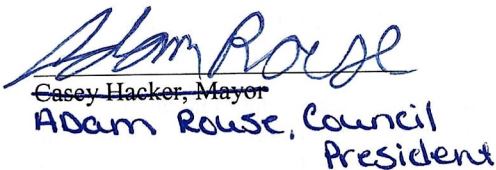 Adam Rouse
Casey Hacker, Mayor
Adam Rouse, Council
President